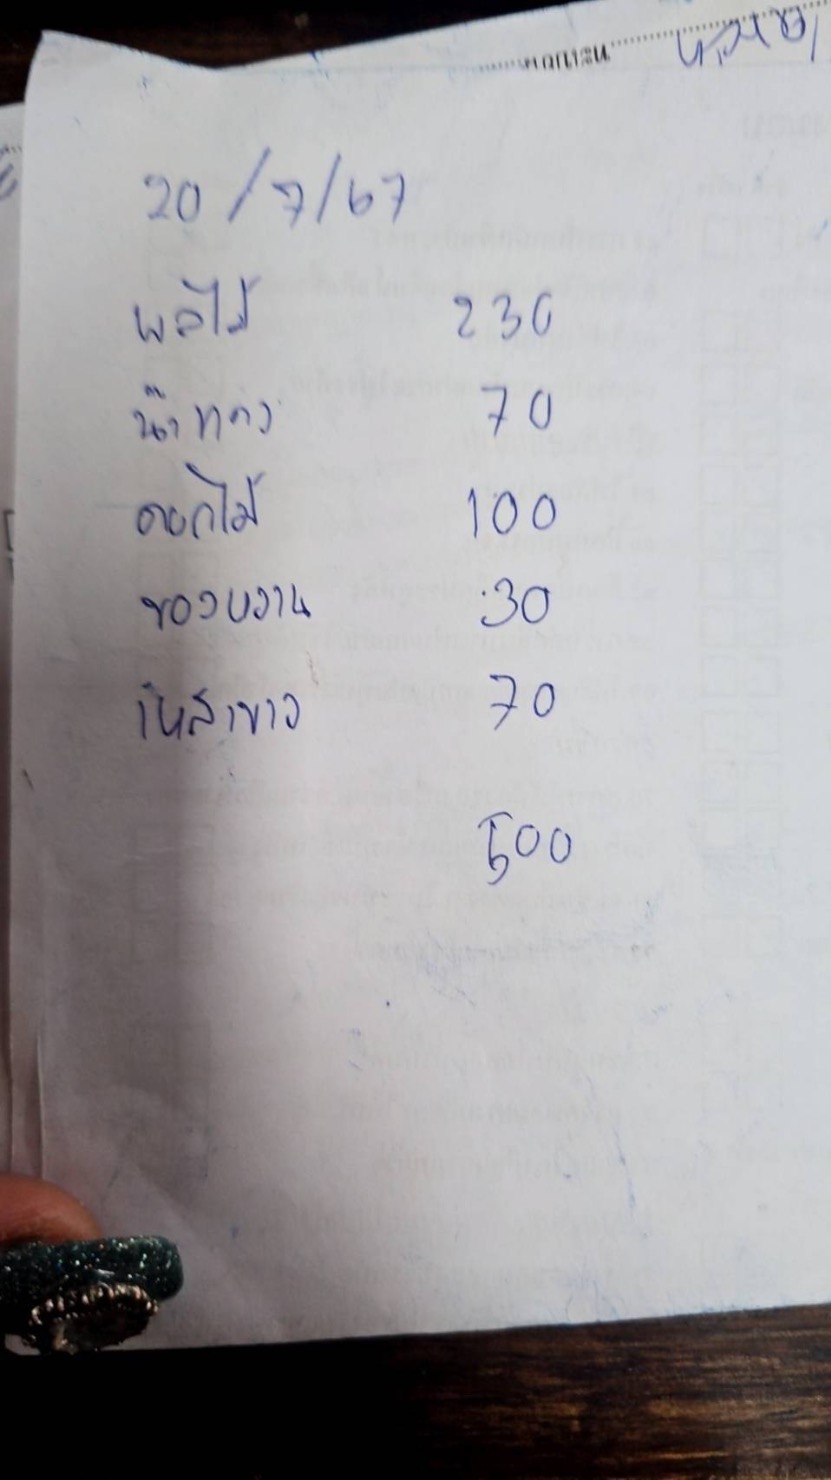 20/7/67
ผลไม้ 230
น้ำแดง 70
ดอกไม้ 100
ของหวาน 30
เหล้าขาว 70
500